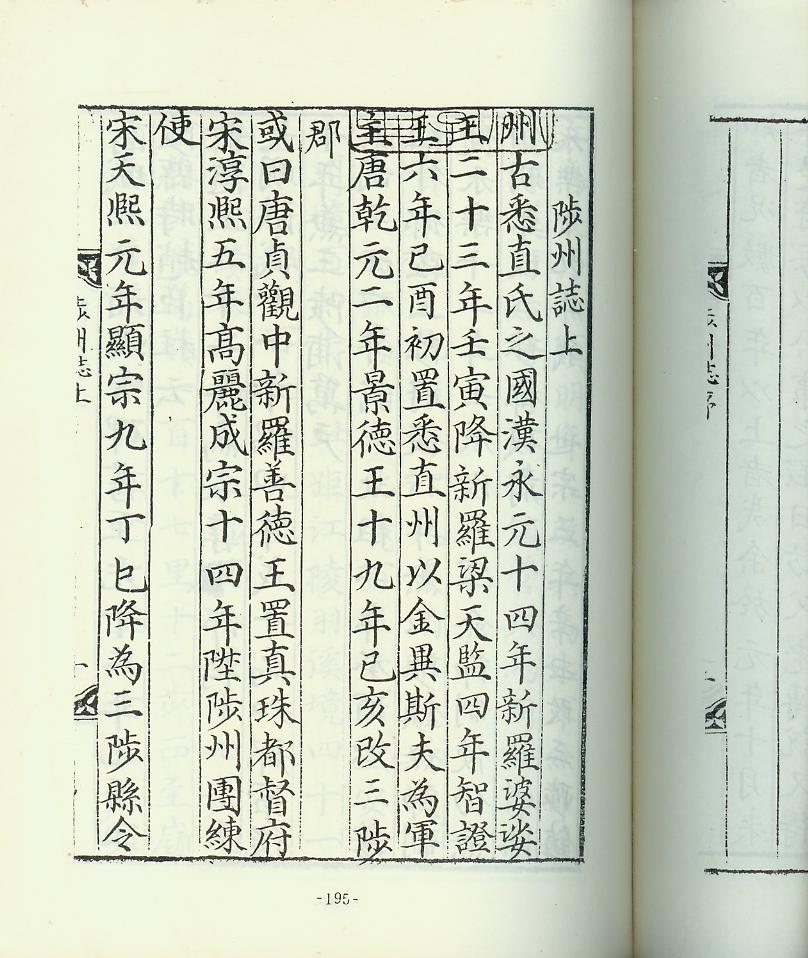 陟州誌上
州古悉直氏之國漢永元十四年新羅婆娑
王二十三年壬寅降新羅梁天監四年智證
王六年己酉初置悉直州以金異斯夫為軍
主唐乾元二年景德王十九年己亥改三陟
郡
或曰唐貞觀中新羅善德王置真珠都督府
宋淳熙五年高麗成宗十四年陞陟州團練
使
宋天熙元年顯宗九年丁巳降為三陟縣令
陟州誌上
-195-